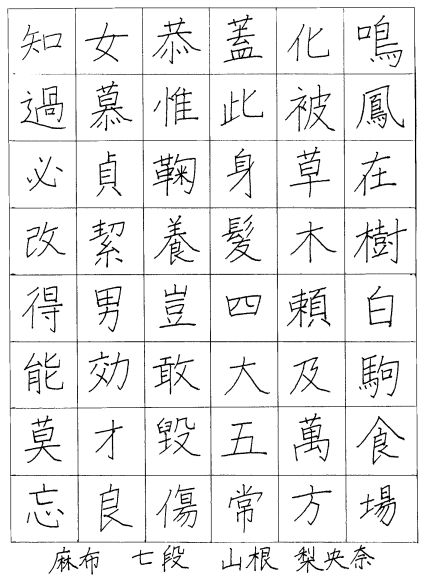 鳴鳳在樹白駒食場
化被草木頼及萬方
蓋此身髪四大五常
恭惟鞠養豈敢毀傷
女慕貞絜男効才良
知過必改得能莫忘
麻布 七段 山根 梨央奈